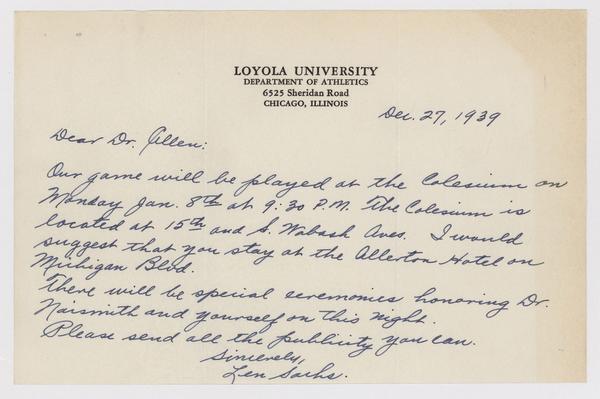 LOYOLA UNIVERSITY
DEPARTMENT OF ATHLETICS
6525 Sheridan Road
CHICAGO, ILLINOIS
Dec. 27, 1939
Dear Dr. Allen:
Our game will be played at the Colesium on
Monday Jan. 8th at 9:30 P.M. The Colesium is
located at 15th and S. Wabash Aves. I would
suggest that you stay at the Allerton Hotel on
Michigan Blvd.
There will be special ceremonies honoring Dr.
Naismith and yourself on this night.
Please send all the publicity you can.
Sincerely,
Len Sachs.